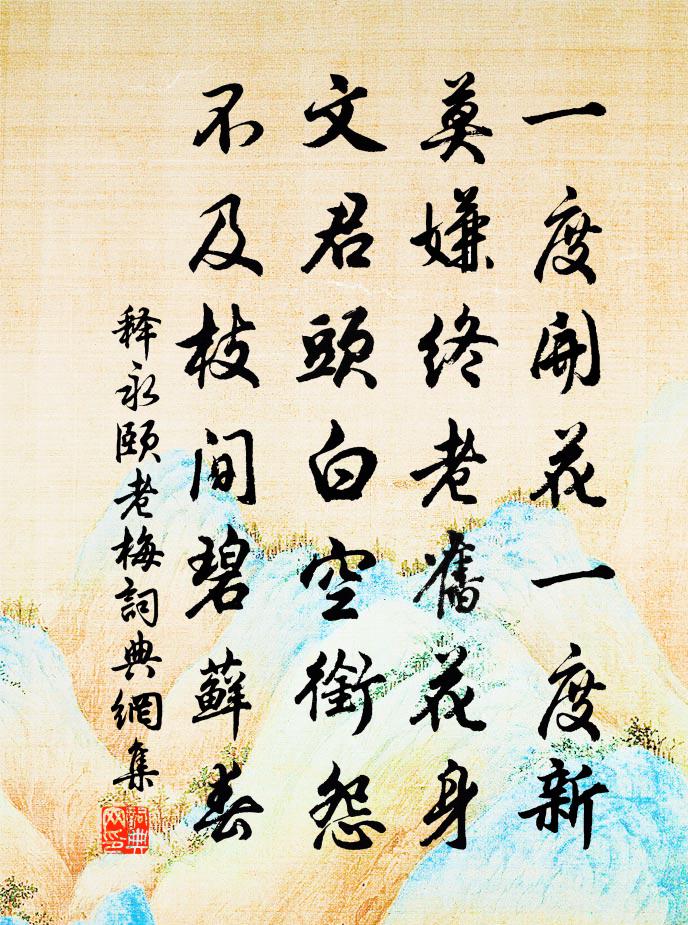 一度開花一度新
莫嫌終老舊花身
文君頭白空銜怨
不及枝間碧蘚春
释永颐老梅詞典網集
詞典网印